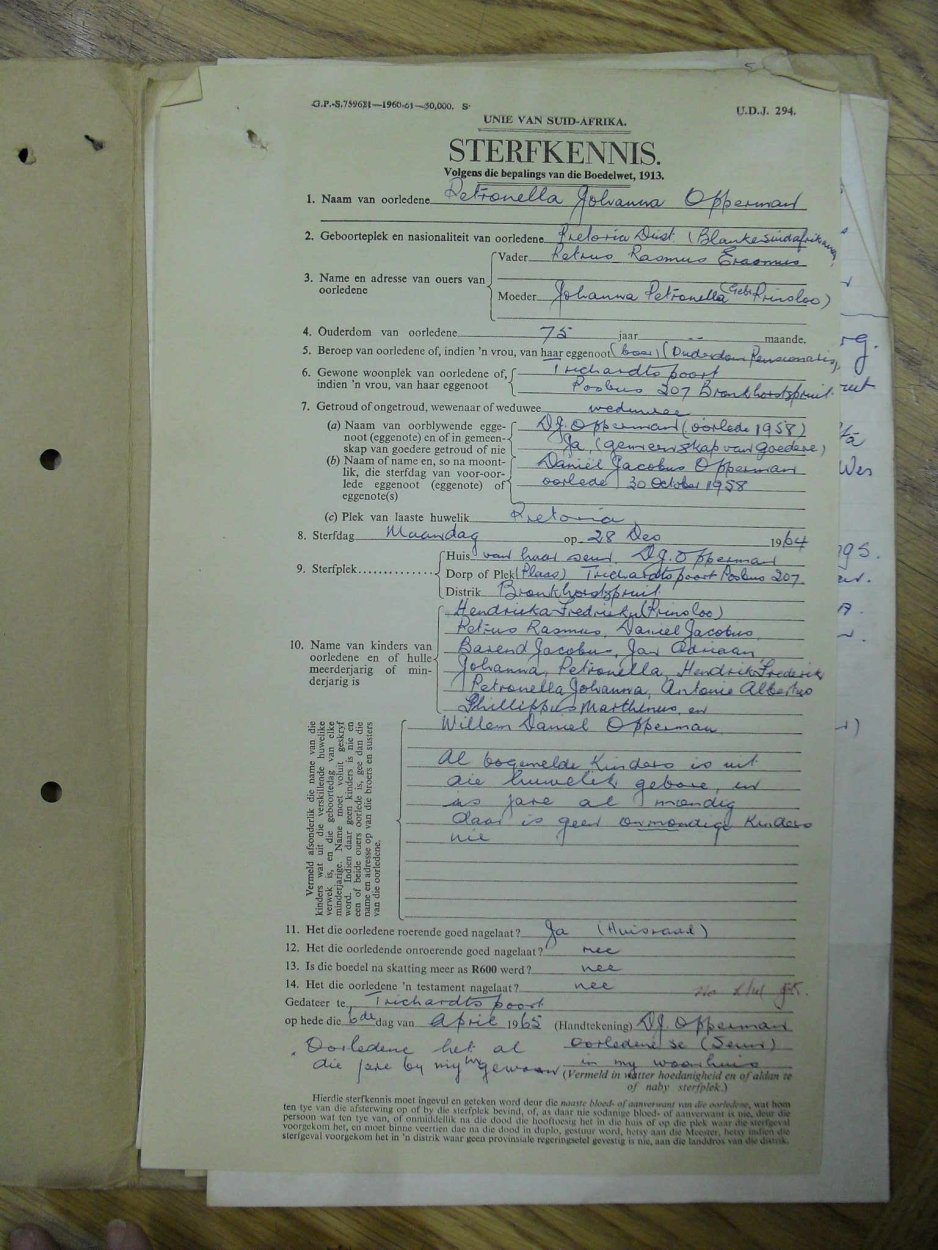 G.P.-S.759621—1960-61—50,000. S
U.D.J. 294.
UNIE VAN SUID-AFRIKA.
STERFKENNIS.
Volgens die bepalings van die Boedelwet, 1913.
1. Naam van oorledene Petronella Johanna Opperman
2. Geboorteplek en nasionaliteit van oorledene Pretoria Dist. (Blanke Suidafrikaner)
3. Name en adresse van ouers van oorledene
Vader Petrus Rasmus Erasmus
Moeder Johanna Petronella (Geb. Prinsloo)
4. Ouderdom van oorledene 75 jaar -- maande.
5. Beroep van oorledene of, indien 'n vrou, van haar eggenoot (boer) (Ouderdom Pensionaris)
6. Gewone woonplek van oorledene of, Trichardts poort
indien 'n vrou, van haar eggenoot Posbus 207 Bronkhorstspruit
7. Getroud of ongetroud, wewenaar of weduwee weduwee
(a) Naam van oorblywende egge- D.J. Opperman (oorlede 1958)
noot (eggenote) en of in gemeen- Ja, (gemeenskap van goedere)
skap van goedere getroud of nie
(b) Naam of name en, so na moont- Daniel Jacobus Opperman
lik, die sterfdag van voor-oor- oorlede 30 October 1958
lede eggenoot (eggenote) of
eggenote(s)
(c) Plek van laaste huwelik Pretoria
8. Sterfdag Maandag op 28 Des 1964
9. Sterfplek
Huis van haar seun D.J. Opperman
Dorp of Plek (Plaas) Trichardtspoort Posbus 207
Distrik Bronkhorstspruit
10. Name van kinders van oorledene en of hulle meerderjarig of min-derjarig is
Hendrieka Fredrieka (Prinsloo)
Petrus Rasmus, Daniel Jacobus,
Barend Jacobus, Jan Adriaan,
Johanna, Petronella, Hendrik Frederik
Petronella Johanna, Antonie Albertus
Phillippus Marthinus, en
Willem Daniel Opperman
Vermeld afsonderlik die name van die
kinders wat uit die verskillende huwelike
verwek is, en die geboortedag van elke
minderjarige. Name moet voluit geskryf
word. Indien daar geen kinders is nie en
een of beide ouers oorlede is, gee dan die
name en adresse op van die broers en susters
van die oorledene.
Al bogemelde Kinders is uit
die huwelik gebore, en
is jare al mondig
daar is geen onmondige Kinders
nie
11. Het die oorledene roerende goed nagelaat? Ja (Huisraad)
12. Het die oorledende onroerende goed nagelaat? nee
13. Is die boedel na skatting meer as R600 werd? nee
14. Het die oorledene 'n testament nagelaat? nee
Gedateer te Trichardts poort
op hede die 6de dag van April 1965 (Handtekening) D.J. Opperman
Oorledene het al oorledene se (Seun)
die jare by my gewoon in my woonhuis
(Vermeld in watter hoedanigheid en of aldan te
of naby sterfplek.)
Hierdie sterfkennis moet ingevul en geteken word deur die naaste bloed- of aanverwant van die oorledene, wat hom
ten tye van die afsterwing op of by die sterfplek bevind, of, as daar nie sodanige bloed- of aanverwant is nie, deur die
persoon wat ten tye van, of onmiddellik na die dood die hooftoesig het in die huis of op die plek waar die sterfgeval
voorgekom het, en moet binne veertien dae na die dood in duplo, gestuur word, hetsy aan die Meester, hetsy indien die
sterfgeval voorgekom het in 'n distrik waar geen provinsiale regeringsetel gevestig is nie, aan die landdros van die distrik.